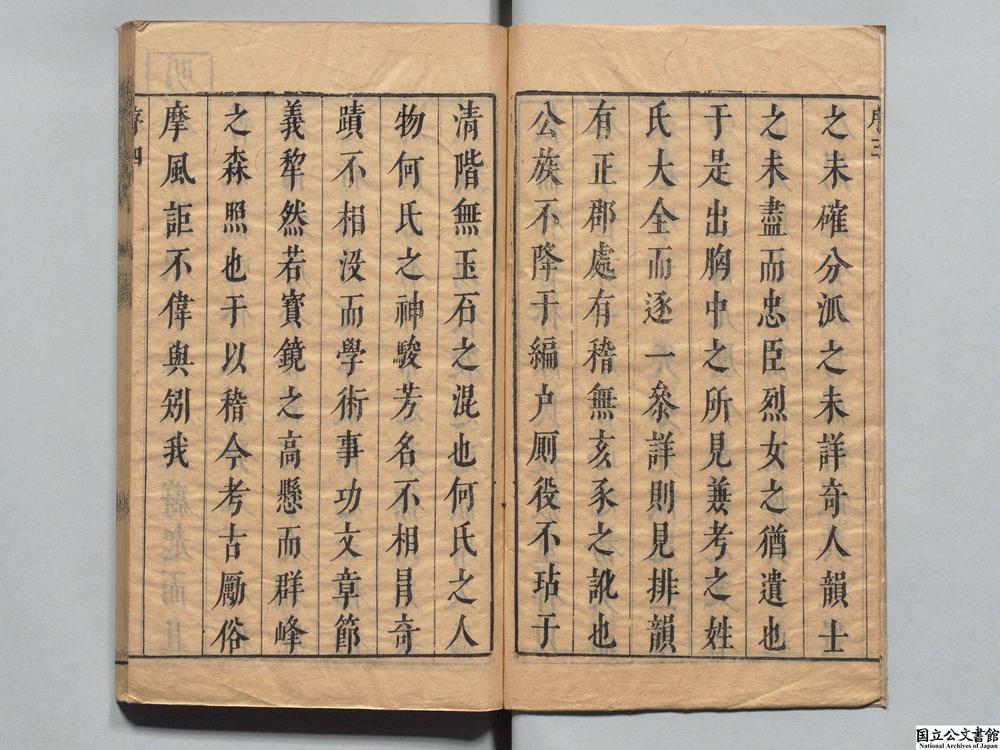 序三
之未確分派之未詳奇人韻士
之未盡而忠臣烈女之猶遺也
于是出胸中之所見兼考之姓
氏大全而逐一叅詳則見排韻
有正郡處有稽無亥豕之訛也
公族不降于編户厠役不玷于
清階無玉石之混也何氏之人
物何氏之神駿芳名不相冐奇
蹟不相沒而學術事功文章節
義犂然若寶鏡之高懸而群峰
之森照也于以稽今考古勵俗
摩風詎不偉與矧我
序四
国立公文書館
National Archives of Japan